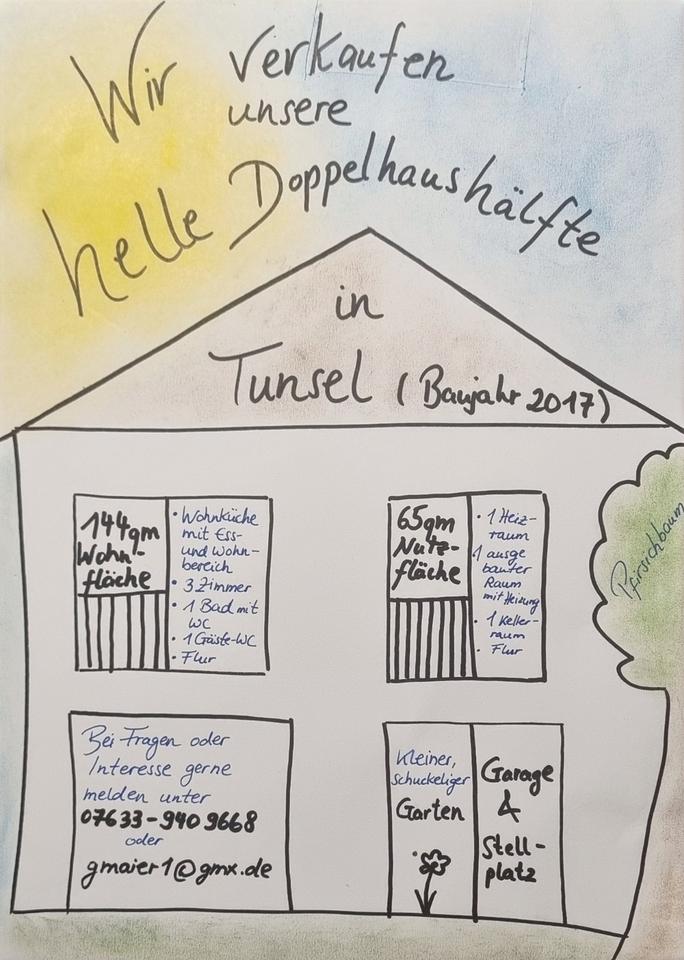 Wir verkaufen
unsere
helle Doppelhaushälfte
in
Tunsel (Baujahr 2017)
144qm
Wohn-
fläche
• Wohnküche
mit Ess-
und Wohn-
bereich
• 3 Zimmer
• 1 Bad mit
WC
• 1 Gäste-WC
• Flur
65qm
Nutz-
fläche
• 1 Heiz-
raum
1 ausge
bauter
Raum
mit Heizung
• 1 Keller-
raum
• Flur
Pfirsichbaum
Bei Fragen oder
Interesse gerne
melden unter
07633-940 9668
oder
gmaier1@gmx.de
Kleiner,
schuckeliger
Garten
Garage
&
Stell-
platz